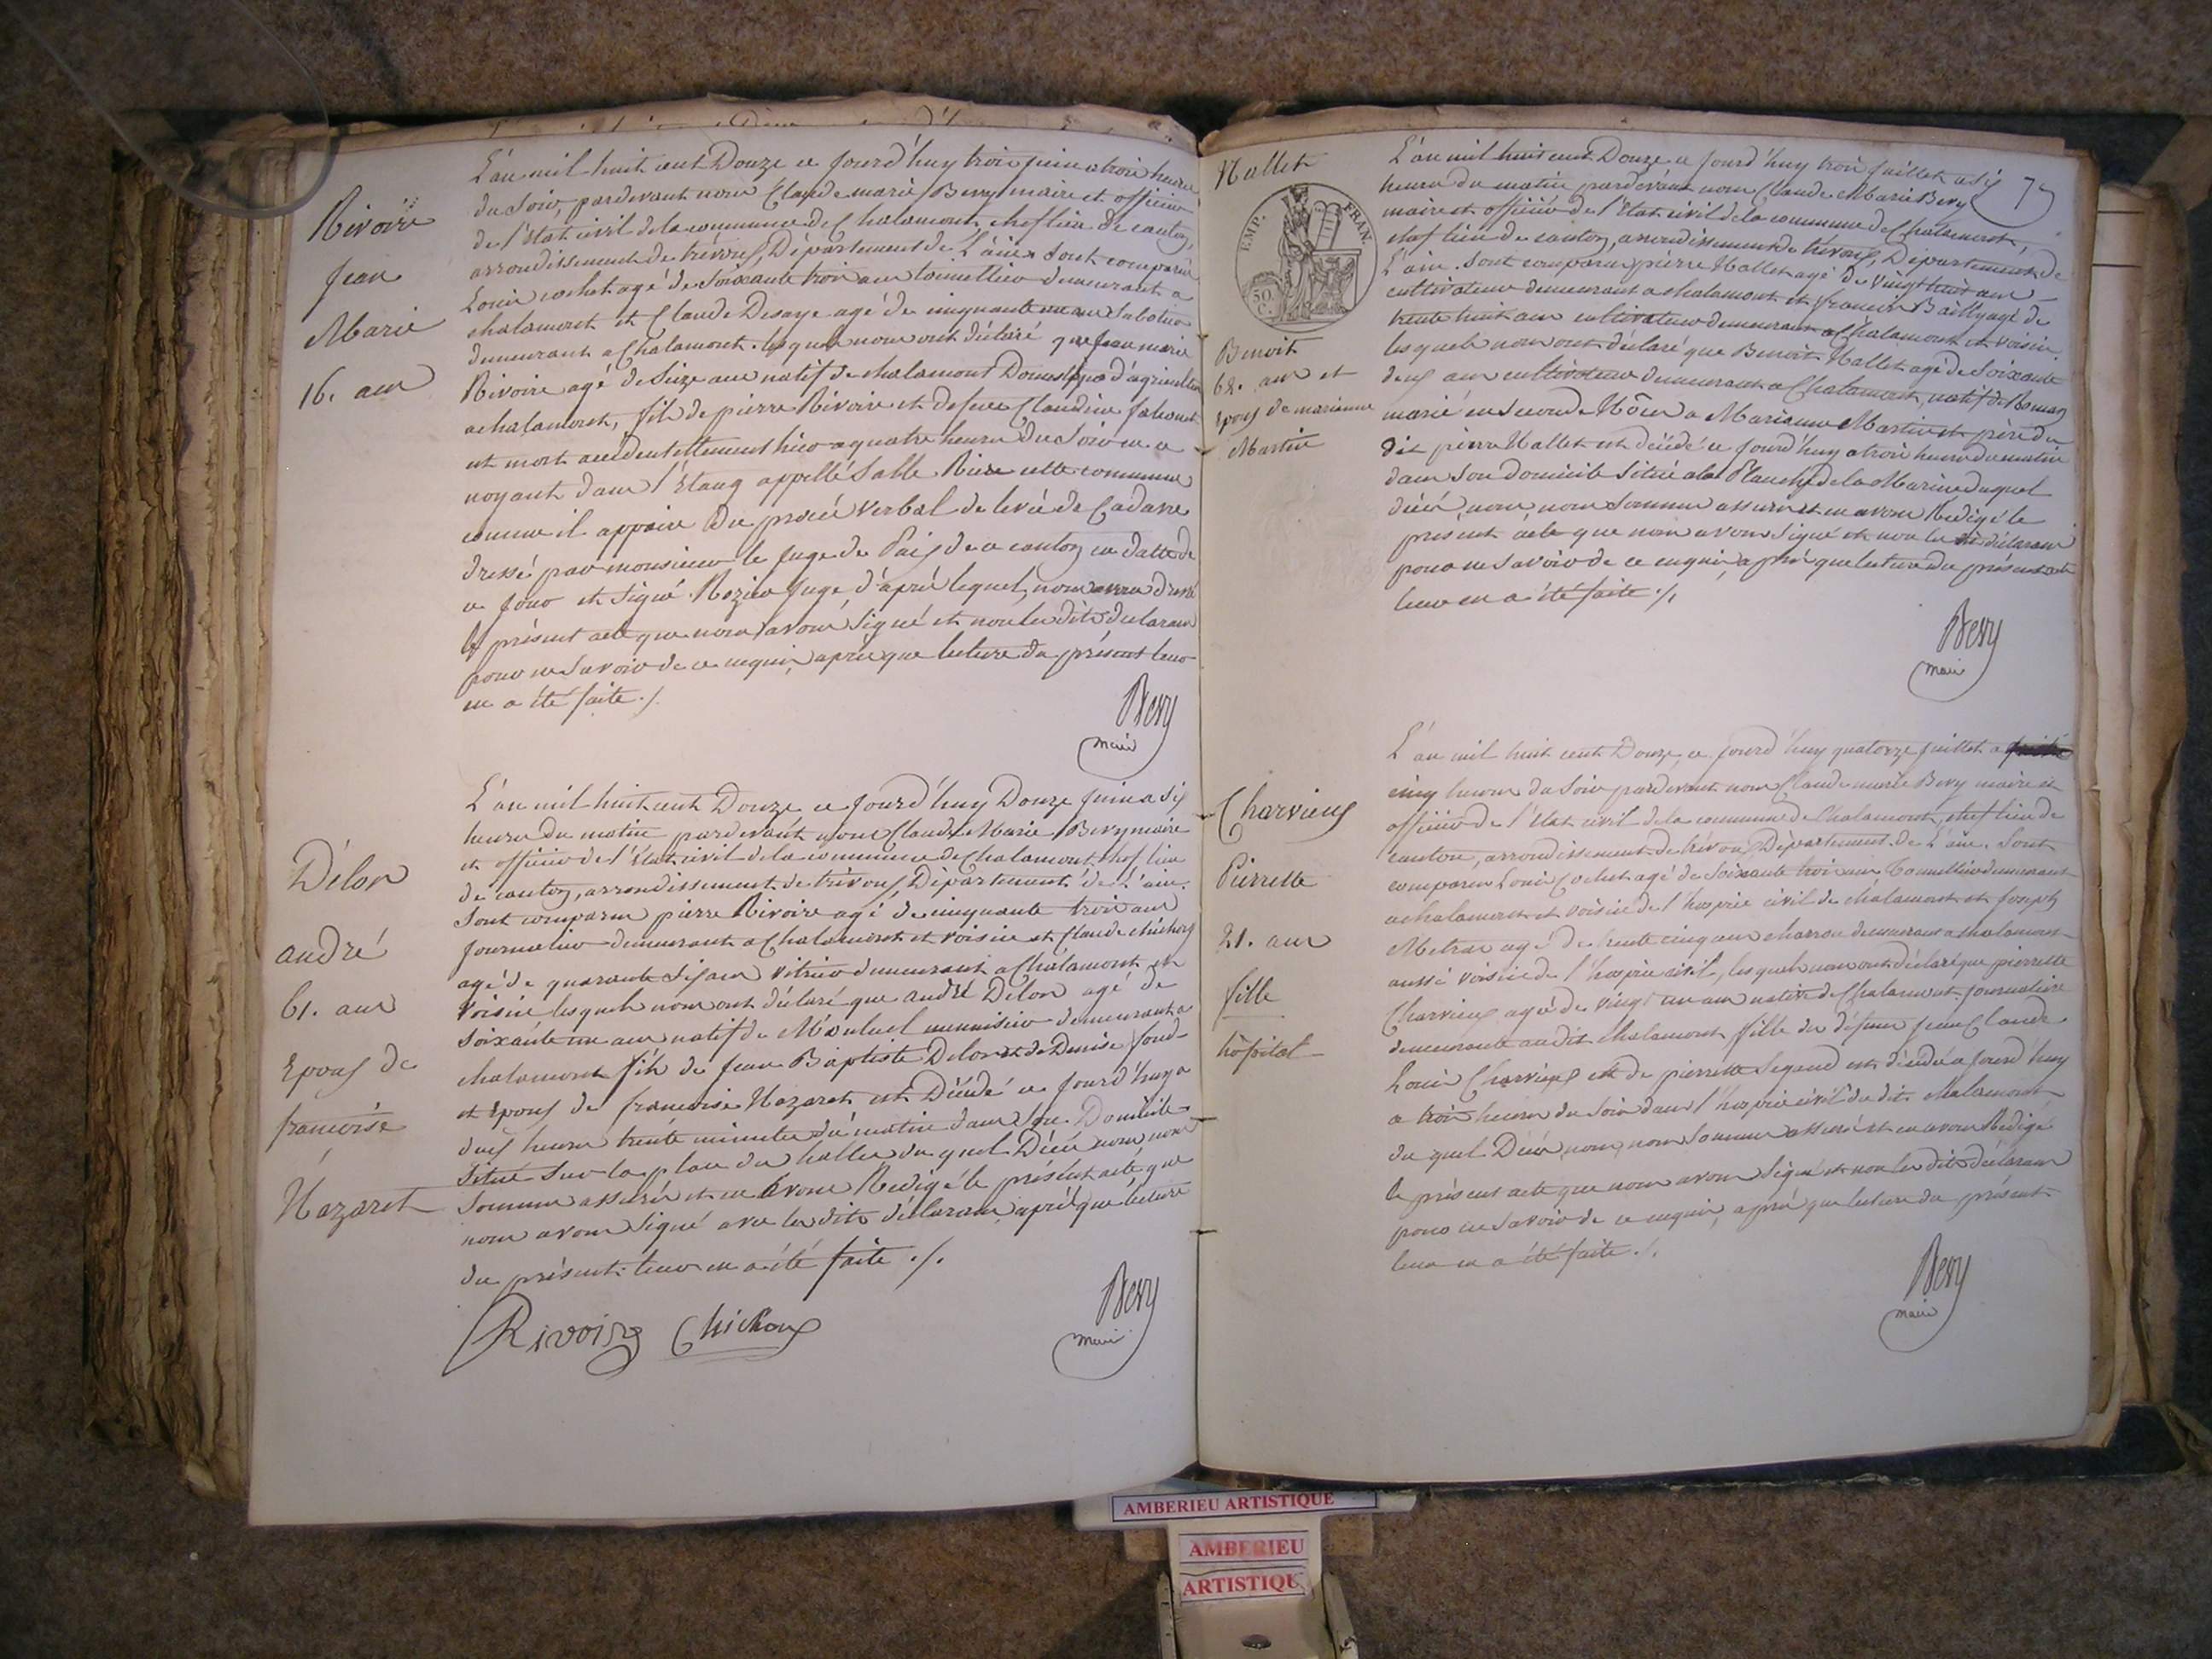 Rivoire
Jean
Marie
16. ans
L'an mil huit cent Douze ce Jourd'huy trois juin a trois heures
du Soir, pardevant nous Claude marie Bevy maire et officier
de l'Etat civil de la commune de Chalamont chef lieu de canton,
arrondissement de trévoux, Département de L'ain. Sont comparus
Louis cochet agé de Soixante trois ans tonnellier demeurant a
chalamont et Claude Desaye agé de cinquante un ans Sabotier
demeurant a Chalamont. lesquels nous ont déclaré que Jean marie
Rivoire agé de Seize ans natif de chalamont Domestique d'agriculteur
a chalamont, fils de pierre Rivoire et de feue Claudine
est mort accidentellement hier a quatre heures du Soir en se
noyant dans l'Etang appellé Salle Rière cette commune
comme il appaire du procès verbal de levée de Cadavre
dressé par monsieur le Juge de Paix de ce canton en datte de
ce jour et Signé Rozier Juge, d'après lequel, nous avons dressé
le présent acte que nous avons Signé et non les dits déclarans
pour ne Savoir de ce requis, après que lecture du présent leur
en a été faite ./.
Bevy
maire
Délon
andré
61. ans
Epoux de
françoise
Nazaret
L'an mil huit cent Douze ce Jourd'huy Douze Juin a Six
heures du matin pardevant nous Claude Marie Bevy maire
et officier de l'Etat civil de la commune de Chalamont chef lieu
de canton, arrondissement de trévoux, Département de L'ain.
Sont comparus pierre Rivoire agé de cinquante trois ans
Journalier demeurant a Chalamont et voisin et Claude chichoux
agé de quarante Six ans vitrier demeurant a Chalamont et
voisin lesquels nous ont déclaré que andré Délon agé de
Soixante un ans natif de menuisier demeurant a
chalamont fils de Jean Baptiste Delon et de Denise fond
et Epoux de françoise Nazaret est Décédé ce Jourd'huy a
deux heures trente minutes du matin dans Son Domicile
Situé Sur la place des halles du quel Décès nous nous
Sommes assurés et en avons Redigé le présent acte que
nous avons Signé avec les dits déclarans, après que lecture
du présent leur en a été faite ./.
Rivoire Chichoux
Bevy
maire
Nallet
EMP. FRAN.
50 C.
Benoit
62. ans et
epoux de marianne
Martin
77
L'an mil huit cent Douze ce Jourd'huy trois Juillet a Six
heures du matin pardevant nous Claude Marie Bevy
maire et officier de l'Etat civil de la commune de Chalamont,
chef lieu de canton, arrondissement de trévoux, Département de
L'ain. Sont comparus pierre Nallet agé de vingt huit ans
cultivateur demeurant a chalamont et françois Bailly agé de
trente huit ans cultivateur demeurant a Chalamont et voisin,
lesquels nous ont déclaré que Benoit Nallet agé de Soixante
deux ans cultivateur demeurant a Chalamont, natif de Romans
marié en Seconde Nôces a Marianne Martin et père du
dit pierre Nallet est décédé ce Jourd'huy a trois heures du matin
dans Son domicile Situé a la Planche de la Marine duquel
décès, nous nous Sommes assurés et en avons Redigé le
présent acte que nous avons Signé et non les dits déclarans
pour ne Savoir de ce requis, après que lecture du présent acte
leur en a été faite ./.
Bevy
maire
Charvieux
Pierrette
21. ans
fille
hôpital
L'an mil huit cent Douze, ce jourd'huy quatorze juillet a
cinq heures du Soir pardevant nous Claude marie Bevy maire et
officier de l'Etat civil de la commune de Chalamont, chef lieu de
canton, arrondissement de trévoux, Département de L'ain. Sont
comparus Louis Cochet agé de Soixante trois ans Tonnellier demeurant
a chalamont et voisin de l'hospice civil de chalamont et Joseph
Metras agé de trente cinq ans charron demeurant a chalamont
aussi voisin de l'hospice civil, lesquels nous ont déclaré que pierrette
Charvieux agée de vingt un ans native de Chalamont. Journalière
demeurante au dit chalamont fille de défunt Jean Claude
Louis Charvieux et de pierrette Segaud est décédée ce Jourd'huy
a trois heures du Soir dans l'hospice civil du dit Chalamont
du quel Décès, nous, nous Sommes assurés et en avons Redigé
le présent acte que nous avons Signé et non les dits déclarans
pour ne Savoir de ce requis, après que lecture du présent
leur en a été faite ./.
Bevy
maire
AMBERIEU ARTISTIQUE
AMBERIEU
ARTISTIQUE